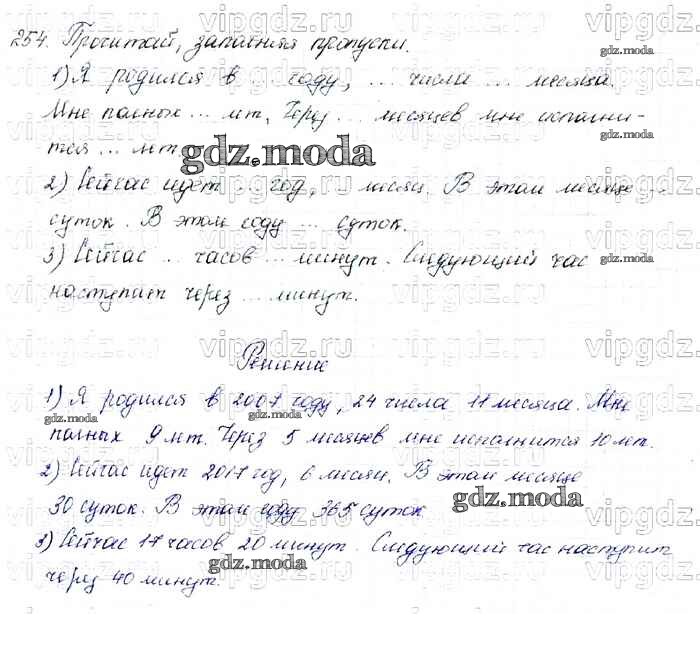 254. Прочитай, заполняя пропуски.
1) Я родился в году, ... числа ... месяца.
Мне полных ... лет. Через ... месяцев мне исполни-
тся ... лет.
gdz.moda
2) Сейчас идет ... год, месяц. В этом месяце ...
суток. В этом году ... суток.
3) Сейчас .. часов ... минут. Следующий час
наступает через ... минут.
Решение
1) Я родился в 2007 году, 24 числа 11 месяца. Мне
полных 9 лет. Через 5 месяцев мне исполнится 10 лет.
2) Сейчас идет 2017 год, 6 месяц. В этом месяце
30 суток. В этом году 365 суток
gdz.moda
3) Сейчас 17 часов 20 минут. Следующий час наступит
gdz.moda
через 40 минут.
vipgdz.ru